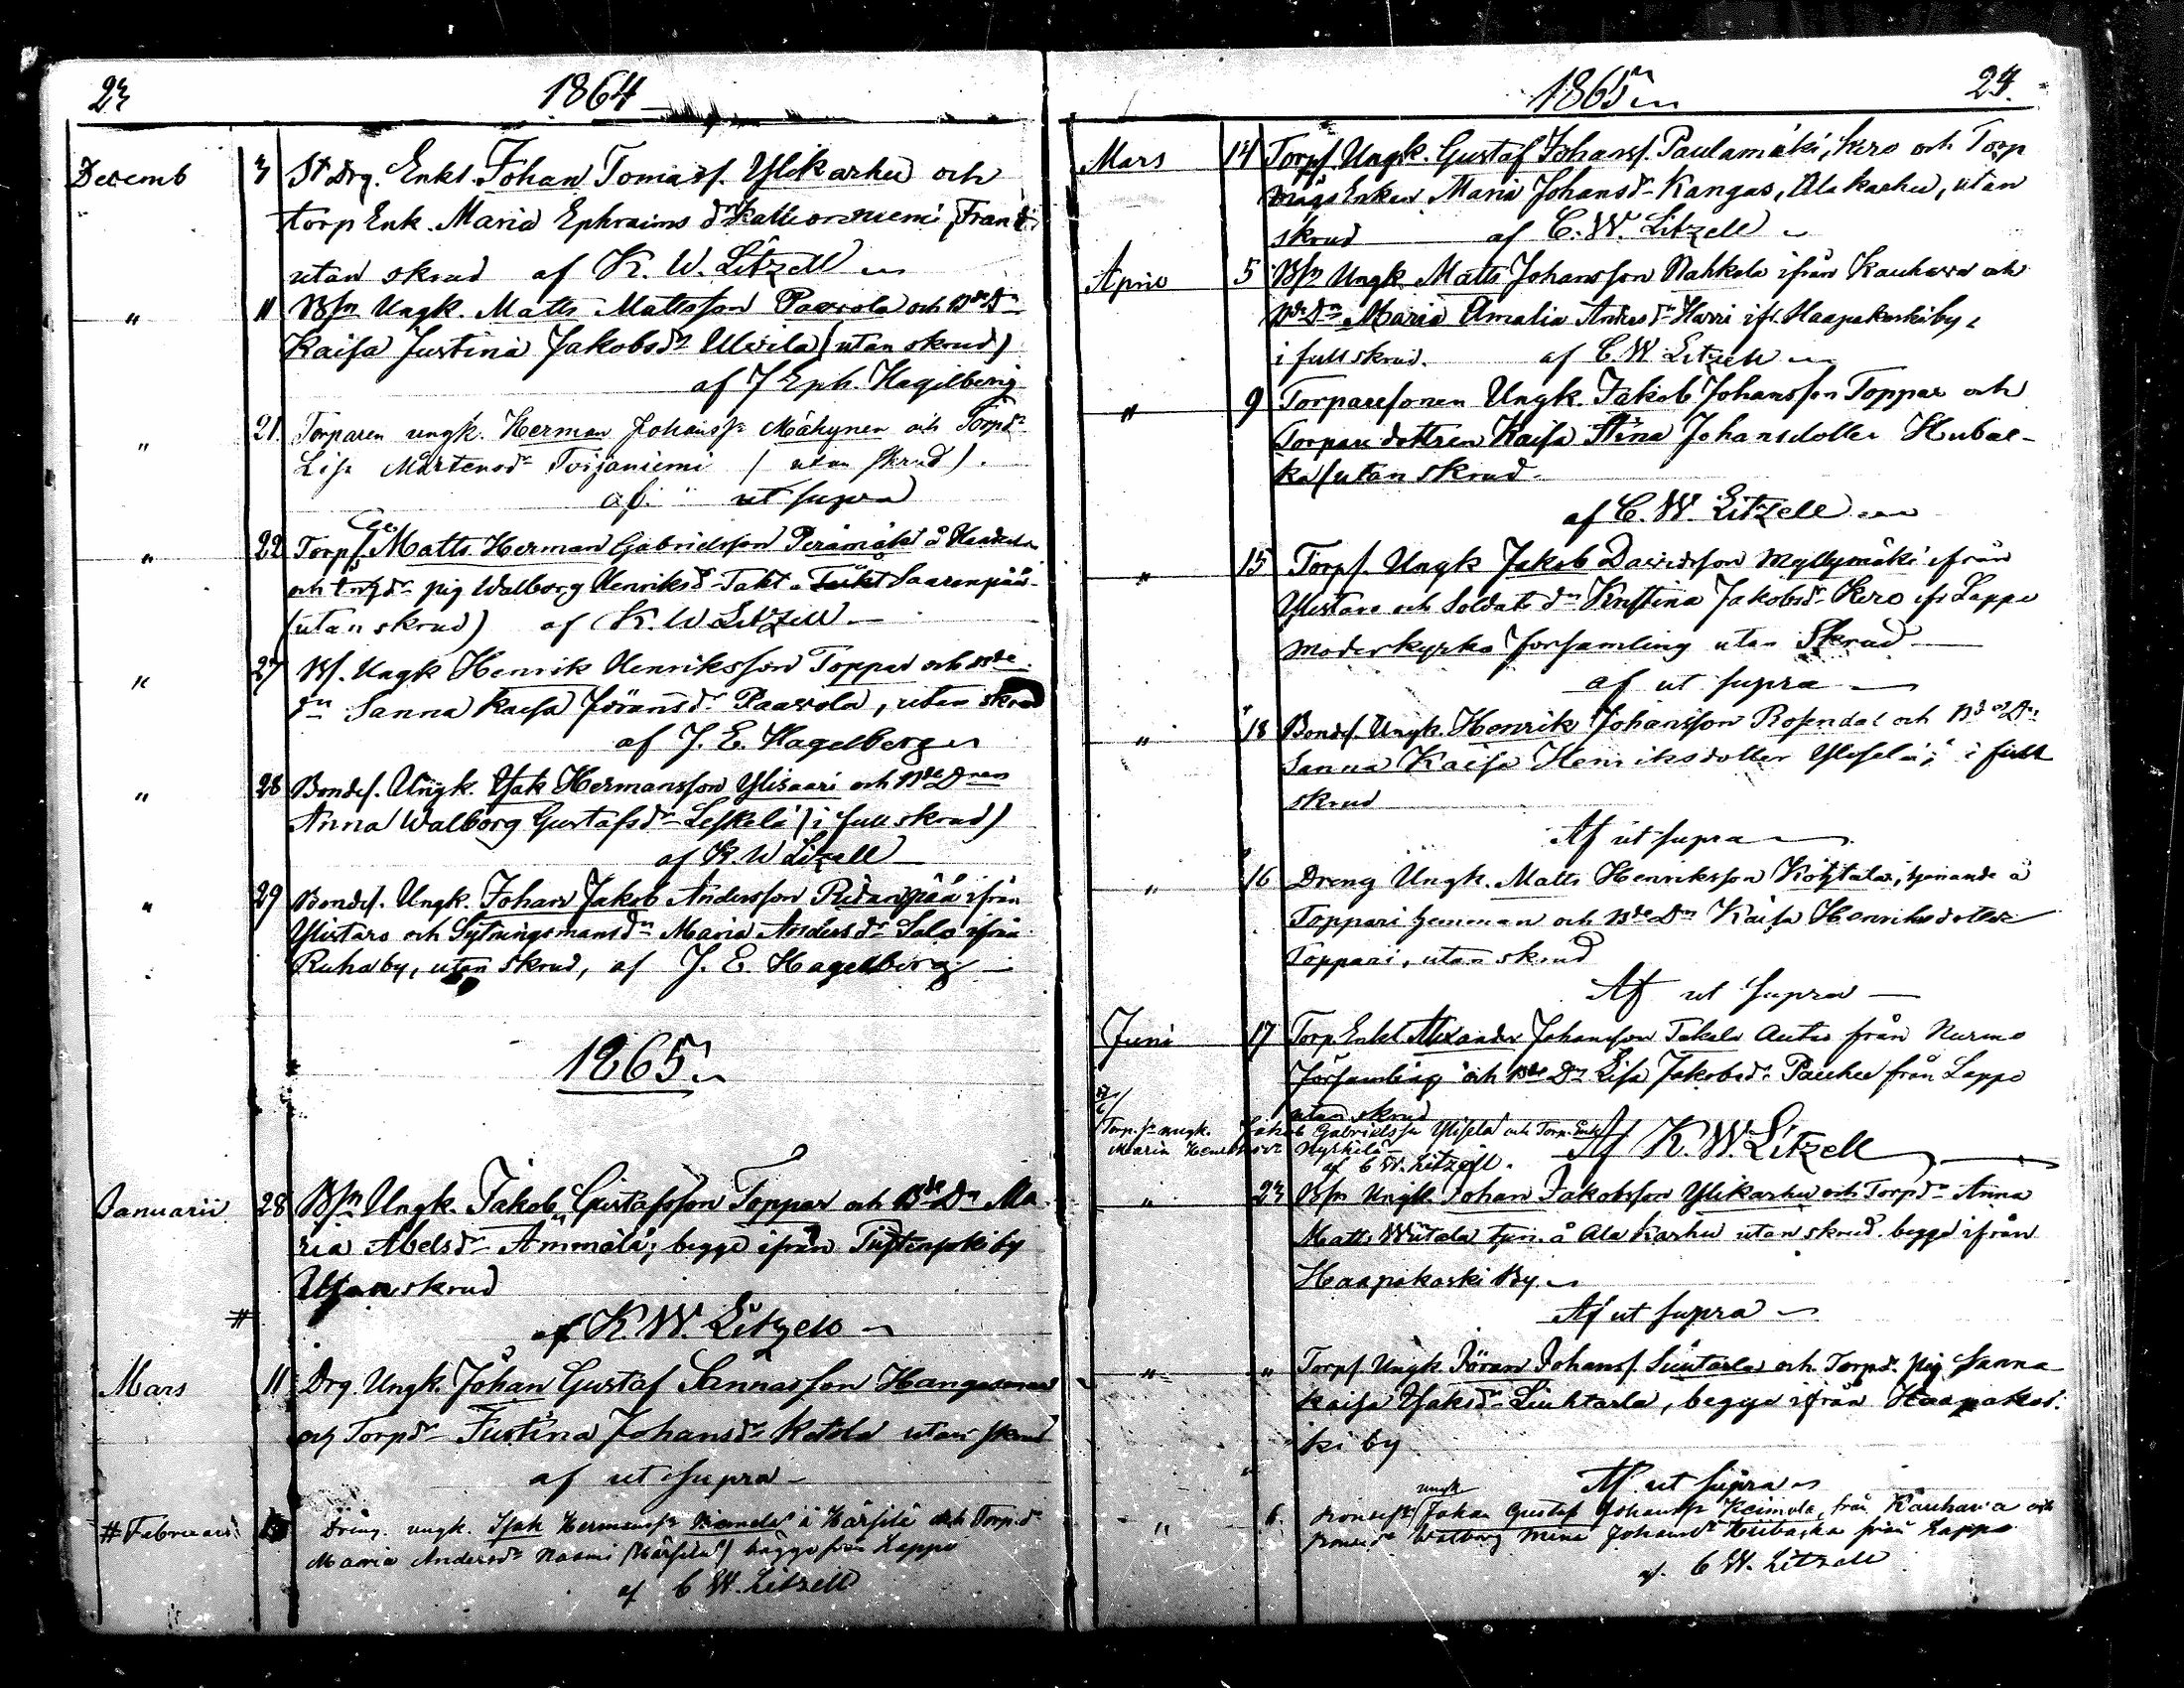 23 1864
Decemb 3 St Drg. Enkl. Johan Tomasf. Ylikarhu och
torp Enk. Maria Ephraims dr Kallioniemi,
utan skrud af K. W. Litzell
" 11 Bsn Ungk. Matts Mattsson Paavola och Bde Dn
Kaisa Justina Jakobsdr (utan skrud)
af J Eph. Hagelberg
" 21 Torparen ungk. Herman Johanss. Mähynen och Torpdr
Lisa Mårtensdr (utan skrud).
af ut supra
" 22 Torpf. Matts Herman Gabrielsson Perämäki å
och pig Walborg Henriksdr Saarenpää
(utan skrud) af K. W Litzell
" 27 Bf. Ungk Henrik Henriksson Toppar och Bde
Dn Sanna Kaisa Jöransdr Paavola, utan skrud
af J. E. Hagelberg
" 28 Bondef. Ungk. Isak Hermansson Ylisaari och Bde Dren
Anna Walborg Gustafsdr Leskelä (i full skrud)
af K. W Litzell
" 29 Bondef. Ungk. Johan Jakob Andersson Ridanpää ifrån
Ylistaro och Sytningsmans dn Maria Andersdr Salo ifrån
Ruhaby, utan skrud, af J. E. Hagelberg
1865.
Januarii 28 Bsn Ungk. Jakob Gustafsson Toppar och Bde Dn Ma
ria Abelsdr Ämmälä, begge ifrån
Utan skrud
# af K. W. Litzell
Mars 11 Drg. Ungk. Johan Gustaf Sannasson
och Torpdr Justina Johansdr Ketola utan skrud
af ut supra
# Februari Dräng. ungk. Isak Hermanss. å Härsilä och Torp.dr
Maria Andersdr (Härsilä) bägge från Lappo
af C W. Litzell
1865 24.
Mars 14 Torpf. Ungk. Gustaf Johansf. Paulamäki, Kero och Torp
mågs Enkan Maria Johansdr Kangas, Alakarhu, utan
skrud af C. W. Litzell
April 5 Bsn Ungk Matts Johansson Nahkala ifrån Kauhava och
Bde Dn Maria Amalia Andersdr Harri ifr. Haapakoskiby,
i full skrud. af C. W. Litzell
" 9 Torparesonen Ungk. Jakob Johansson Toppar och
Torpare dottren Kaisa Stina Johansdotter Huhta-
ka (utan skrud
af C. W. Litzell
" 15 Torpf. Ungk Jakob Davidsson Myllymäki ifrån
Ylistaro och Soldats dn Kristina Jakobsdr Kero ifr Lappo
Moderkyrko församling utan Skrud
af ut supra
" 18 Bondf. Ungk. Henrik Johansson Rosendal och Bdes Dr
Sanna Kaisa Henriksdotter Yliselä, i full
skrud
Af ut supra
" 16 Dreng Ungk. Matts Henriksson, tjenande å
Toppari hemman och Bde Dn Kaisa Henriksdotter
Toppari, utan skrud
Af ut supra
Juni 17 Torp Enkl. Alexander Johansson från Nurmo
församling och Bde Dn Lisa Jakobsdr från Lappo
utan skrud
17/6 Torp.sn ungk. Jakob Gabrielsson Yliselä och Torp. Enk.
Maria Henriksdr Nyrhilä Af K. W. Litzell
af C W. Litzell.
" 23 Bsn Ungk. Johan Jakobsson Ylikarhu och Torpdr Anna
Matts Wiitala tjen. å Ala Karhu utan skrud. begge ifrån
Haapakoski By.
Af ut supra
" " Torpf. Ungk. Jöran Johansf. Liuhtarla och Torpdr. Pig Sanna
Kaisa Isaksdr Liuhtarla, begge ifrån Haapakos-
ki by
Af ut supra
" 6. Bondesn ungk Johan Gustaf Johansson från Kauhava och
Bondedr Walborg Mina Johansdr från Lappo
af C W. Litzell